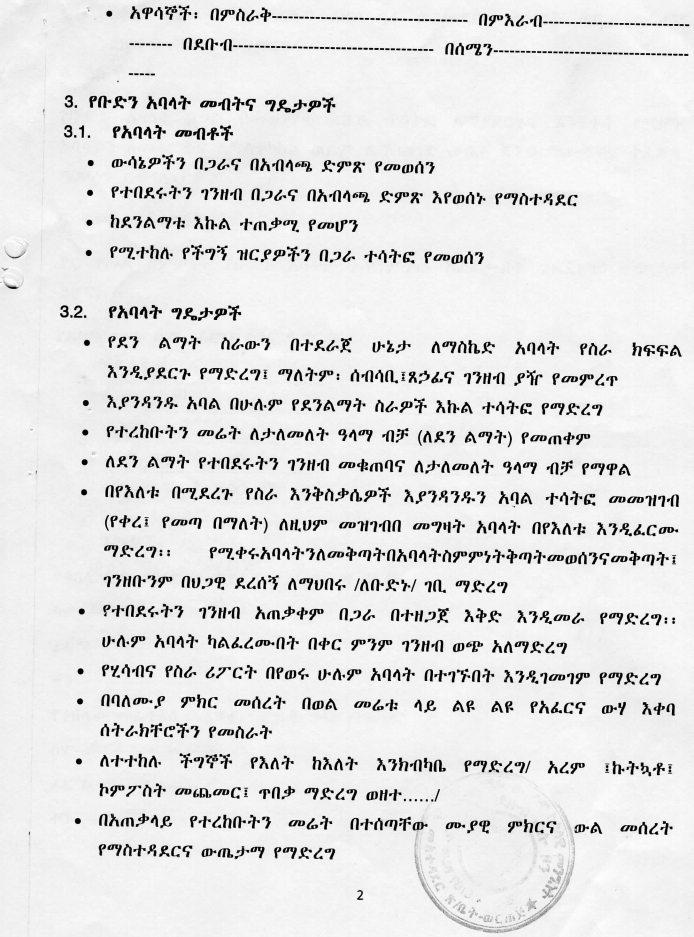 • አዋሳኞች፡ በምስራቅ---------------------------------- በምእራብ--------------------------
-------- በደቡብ----------------------------------- በሰሜን----------------------------------
-----
3. የቡድን አባላት መብትና ግዴታዎች
3.1. የአባላት መብቶች
• ውሳኔዎችን በጋራና በአብላጫ ድምጽ የመወሰን
• የተበደሩትን ገንዘብ በጋራና በአብላጫ ድምጽ እየወሰኑ የማስተዳደር
• ከደንልማቱ እኩል ተጠቃሚ የመሆን
• የሚተከሉ የችግኝ ዝርያዎችን በጋራ ተሳትፎ የመወሰን
3.2. የአባላት ግዴታዎች
• የደን ልማት ስራውን በተደራጀ ሁኔታ ለማስኬድ አባላት የስራ ክፍፍል
እንዲያደርጉ የማድረግ፤ ማለትም፡ ሰብሳቢ፤ጸኃፊና ገንዘብ ያዥ የመምረጥ
• እያንዳንዱ አባል በሁሉም የደንልማት ስራዎች እኩል ተሳትፎ የማድረግ
• የተረከቡትን መሬት ለታለመለት ዓላማ ብቻ (ለደን ልማት) የመጠቀም
• ለደን ልማት የተበደሩትን ገንዘብ መቁጠባና ለታለመለት ዓላማ ብቻ የማዋል
• በየእለቱ በሚደረጉ የስራ እንቅስቃሴዎች እያንዳንዱን አባል ተሳትፎ መመዝገብ
(የቀረ፤ የመጣ በማለት) ለዚህም መዝገብበ መግዛት አባላት በየእለቱ እንዲፈርሙ
ማድረግ፡፡ የሚቀሩአባላትንለመቅጣትበአባላትስምምነትቅጣትመወሰንናመቅጣት፤
ገንዘቡንም በህጋዊ ደረሰኝ ለማህበሩ /ለቡድኑ/ ገቢ ማድረግ
• የተበደሩትን ገንዘብ አጠቃቀም በጋራ በተዘጋጀ እቅድ እንዲመራ የማድረግ፡፡
ሁሉም አባላት ካልፈረሙበት በቀር ምንም ገንዘብ ወጭ አለማድረግ
• የሂሳብና የስራ ሪፖርት በየወሩ ሁሉም አባላት በተገኙበት እንዲገመገም የማድረግ
• በባለሙያ ምክር መሰረት በወል መሬቱ ላይ ልዩ ልዩ የአፈርና ውሃ እቀባ
ሰትራክቸሮችን የመስራት
• ለተተከሉ ችግኞች የእለት ከእለት እንክብካቤ የማድረግ/ አረም ፤ኩትኳቶ፤
ኮምፖስት መጨመር፤ ጥበቃ ማድረግ ወዘተ....../
• በአጠቃላይ የተረከቡትን መሬት በተሰጣቸው ሙያዊ ምክርና ውል መሰረት
የማስተዳደርና ውጤታማ የማድረግ
2